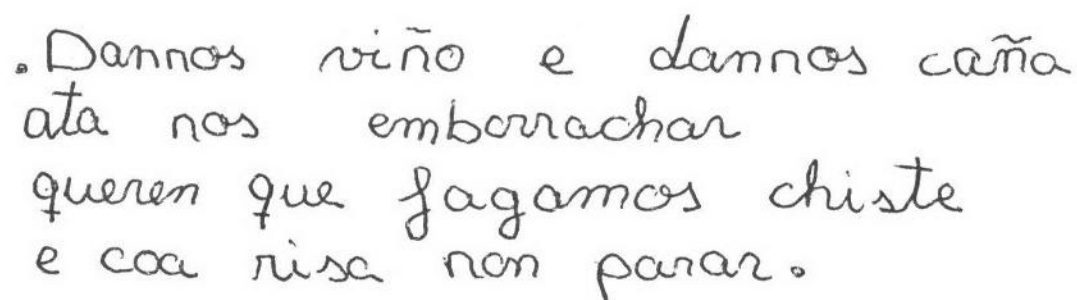 .Dannos viño e dannos caña
ata nos emborrachar
queren que fagamos chiste
e coa risa non parar.